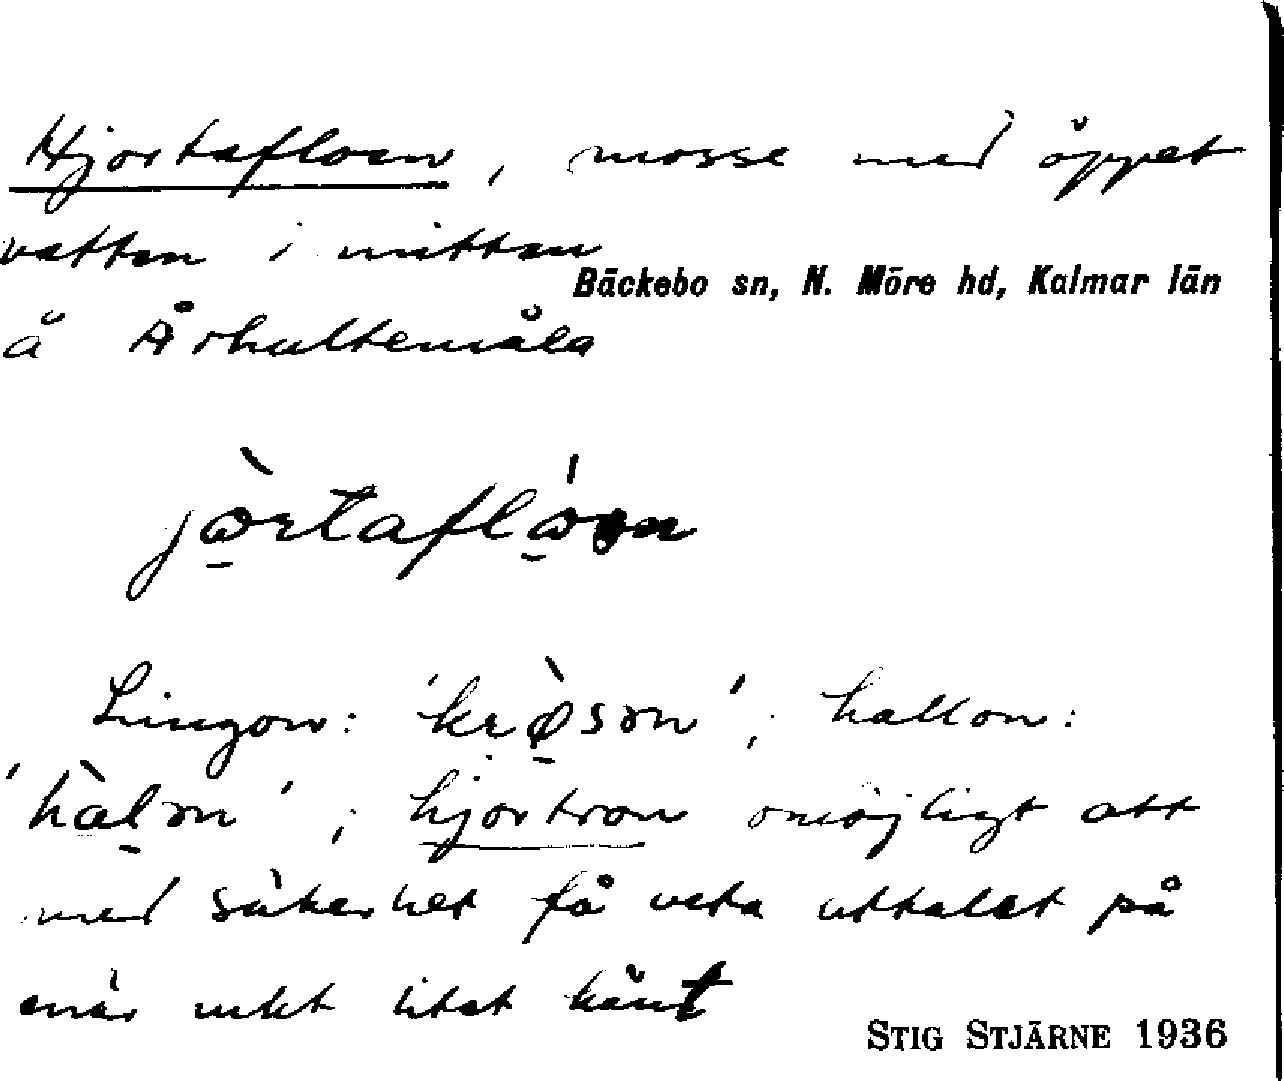 Hjortafloen, mosse med öppet
vatten i mitten
Bäckebo sn, N. Möre hd, Kalmar län
å Århultemåla
Lingon: 'krø̀sɷn'; hallon:
'hàlɷn'; hjortron omöjligt att
med säkerhet få veta uttalet på
enär mkt litet känt
STIG STJÄRNE 1936